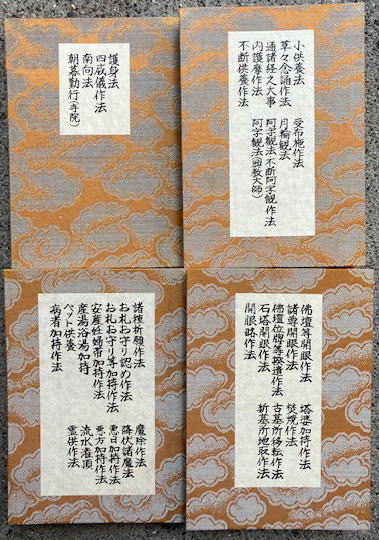 小供養法 受布施作法
草々念誦作法 月輪観法
通諸経之大事 阿字観法(不断阿字観作法)
内護摩作法 阿字観法(興教大師)
不断供養作法
護身法
四威儀作法
南向法
朝暮勤行(寺院)
佛壇等開眼作法 塔婆加持作法
諸尊開眼作法 焚焼作法
佛壇位牌等撥遣作法 古墓所移転作法
石塔開眼作法 新墓所地取作法
開眼略作法
諸種祈願作法 魔除作法
お札お守り認め作法 降伏諸魔法
お札お守り等加持作法 悪日加持作法
安産妊婦帯加持作法 悪方加持作法
産湯浴湯加持 流水灌頂
ペット供養 霊供作法
病者加持作法